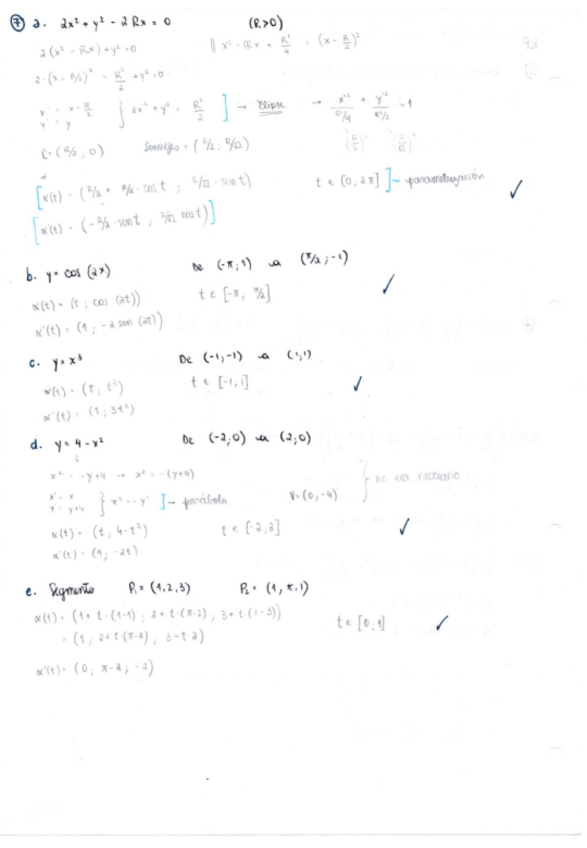 ⑦ a. 2x² + y² - 2Rx = 0 (R>0)
2(x² - Rx) + y² = 0 || x² - Rx + R²/4 = (x - R/2)²
2·(x - R/2)² - R²/2 + y² = 0
x' = x - R/2
y' = y } 2x'² + y'² = R²/2 ] → Elipse → x'²/(R²/4) + y'²/(R²/2) = 1
C = (R/2, 0) Semiejes = (R/2; R/√2)
[α(t) = (R/2 + R/2·cos t ; R/√2·sen t) t ∈ [0, 2π] ]→ parametrización ✓
[α'(t) = (-R/2·sen t ; R/√2 cos t)]
b. y = cos (2x) De (-π; 1) a (π/2; -1)
α(t) = (t ; cos (2t)) t ∈ [-π, π/2] ✓
α'(t) = (1 ; -2 sen (2t))
c. y = x³ De (-1; -1) a (1,1)
α(t) = (t; t³) t ∈ [-1, 1] ✓
α'(t) = (1; 3t²)
d. y = 4 - x² De (-2,0) a (2,0)
↓
x² = -y+4 → x² = -(y+4)
x' = x
y' = y+4 } x'² = -y' ]→ parábola V = (0, -4) } no era necesario
α(t) = (t; 4 - t²) t ∈ [-2, 2] ✓
α'(t) = (1; -2t)
e. Segmento P₁ = (1,2,3) P₂ = (1, π, 1)
α(t) = (1 + t·(1-1) ; 2 + t·(π-2) ; 3 + t·(1-3)) t ∈ [0, 1] ✓
= (1 ; 2 + t·(π-2) ; 3 - t·2)
α'(t) = (0; π-2; -2)